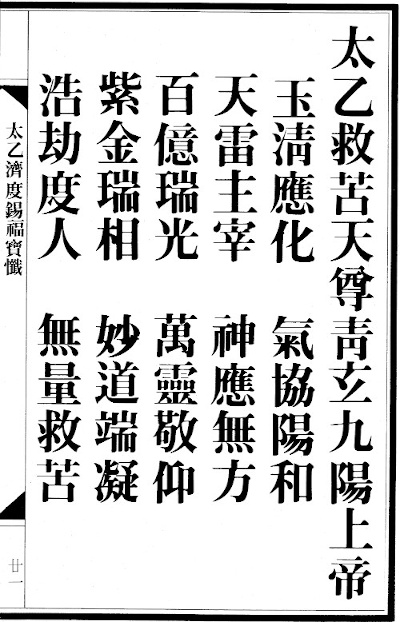 太乙救苦天尊青玄九陽上帝
玉清應化　氣協陽和
天雷主宰　神應無方
百億瑞光　萬靈敬仰
紫金瑞相　妙道端凝
浩劫度人　無量救苦
太乙濟度錫福寶懺
廿一